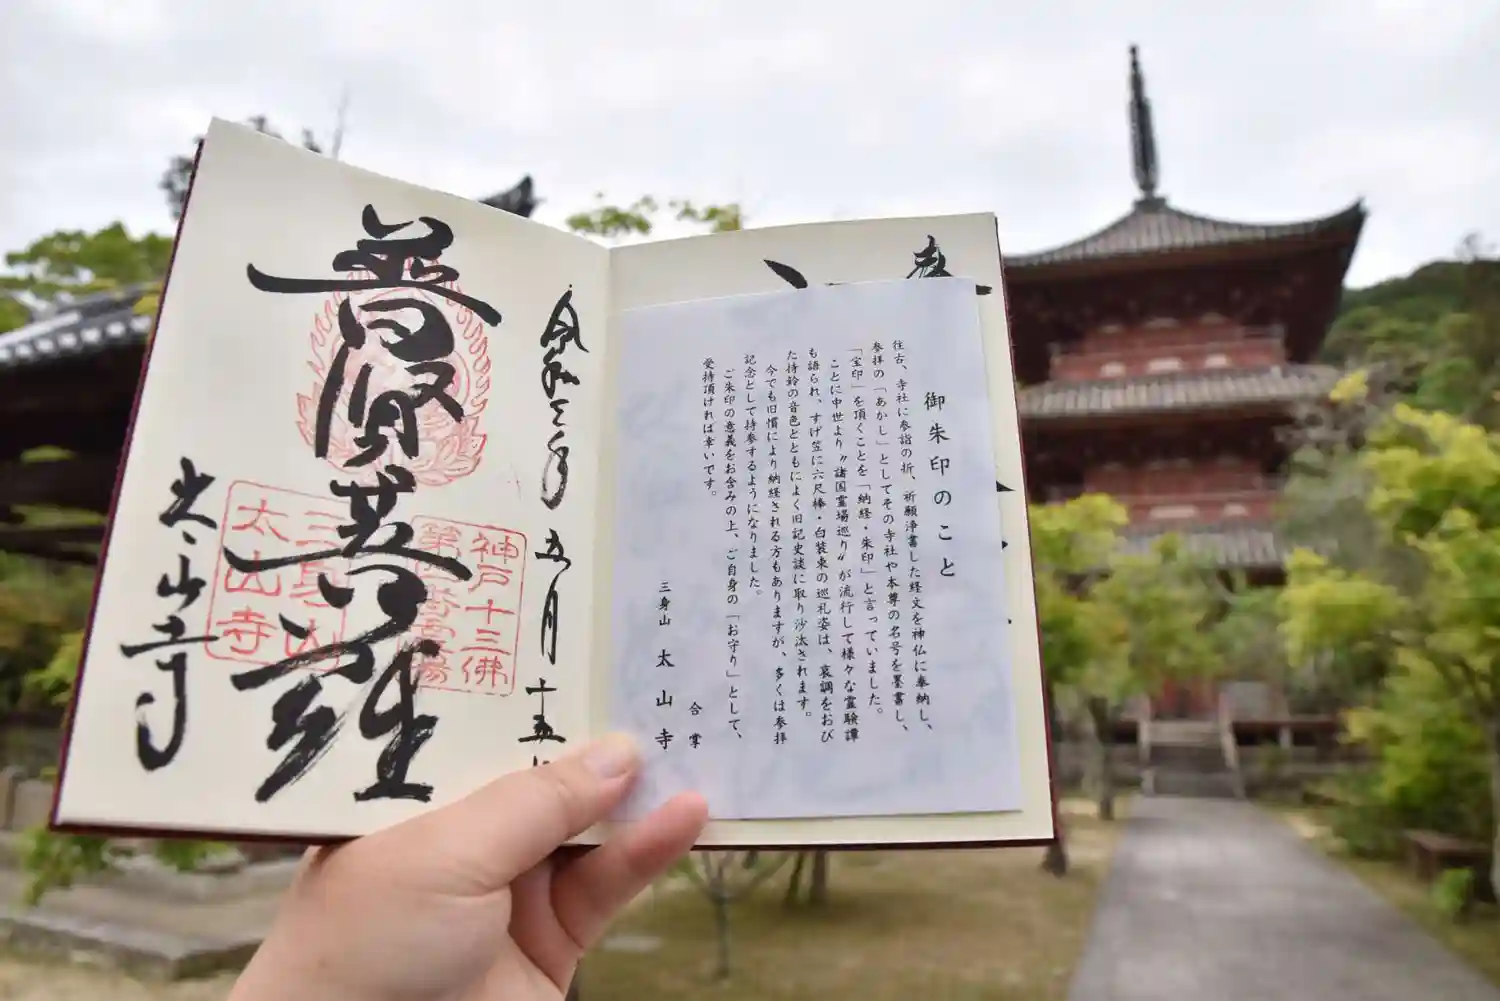 奉
御朱印のこと
往古、寺社に参詣の折、祈願浄書した経文を神仏に奉納し、
参拝の「あかし」としてその寺社や本尊の名号を墨書し、
「宝印」を頂くことを「納経・朱印」と言っていました。
ことに中世より〝諸国霊場巡り〟が流行して様々な霊験譚
も語られ、すげ笠に六尺棒・白装束の巡礼姿は、哀調をおび
た持鈴の音色とともによく旧記史談に取り沙汰されます。
今でも旧慣により納経される方もありますが、多くは参拝
記念として持参するようになりました。
ご朱印の意義をお含みの上、ご自身の「お守り」として、
受持頂ければ幸いです。
合掌
三身山 太山寺
令和三年 五月 十五日
神戸十三佛
第四番霊場
普賢菩薩
三身山
太山寺
太山寺